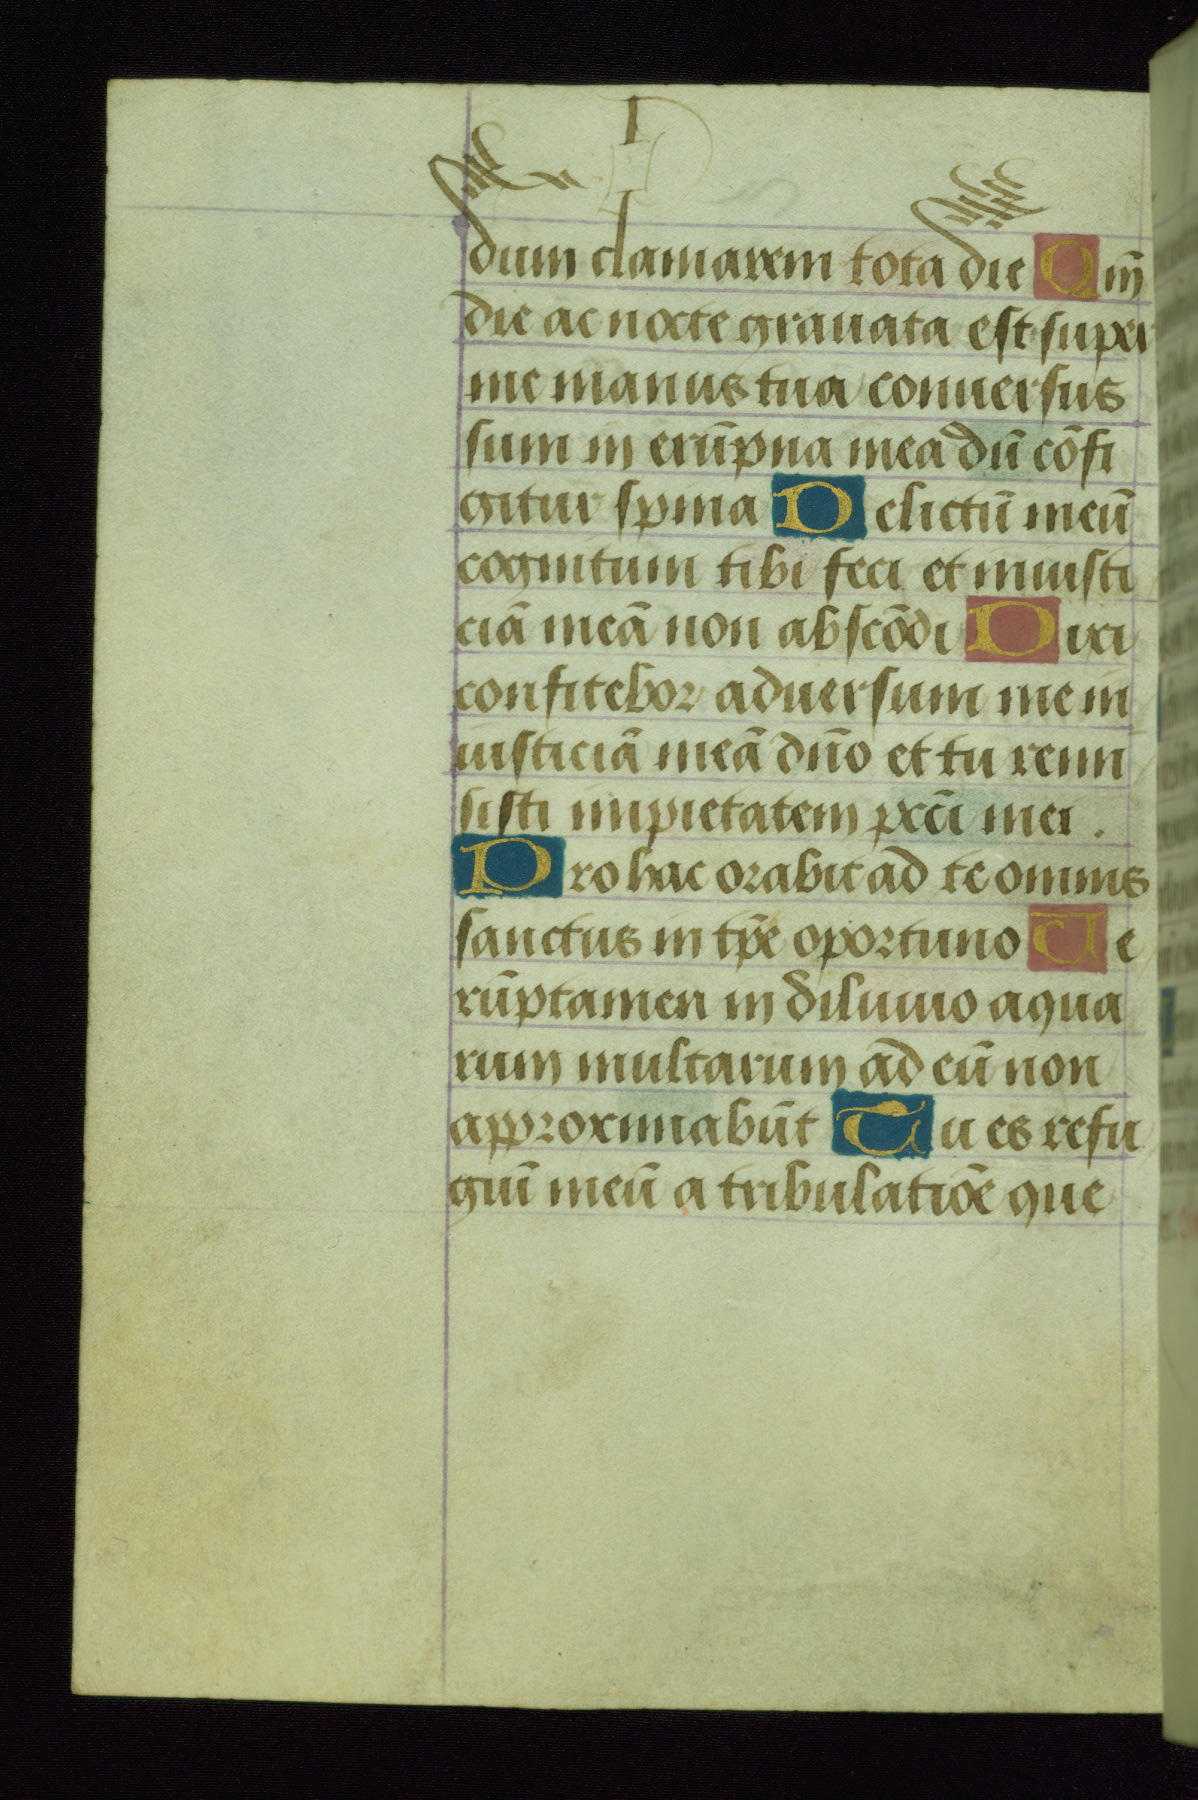 dum clamarem tota die Qm̄
die ac nocte grauata est super
me manus tua conuersus
sum in erūpna mea dū cōfi
gitur spina Delictū meū
cognitum tibi feci et iniusti
ciā meā non abscōdi Dixi
confitebor aduersum me in
iusticiā meā dn̄o et tu remi
sisti impietatem pcc̄i mei .
Pro hac orabit ad te omnis
sanctus in tp̄e oportuno Ue
rūptamen in diluuio aqua
rum multarum ad eū non
approximabūt Tu es refu
giū meū a tribulatiōe que